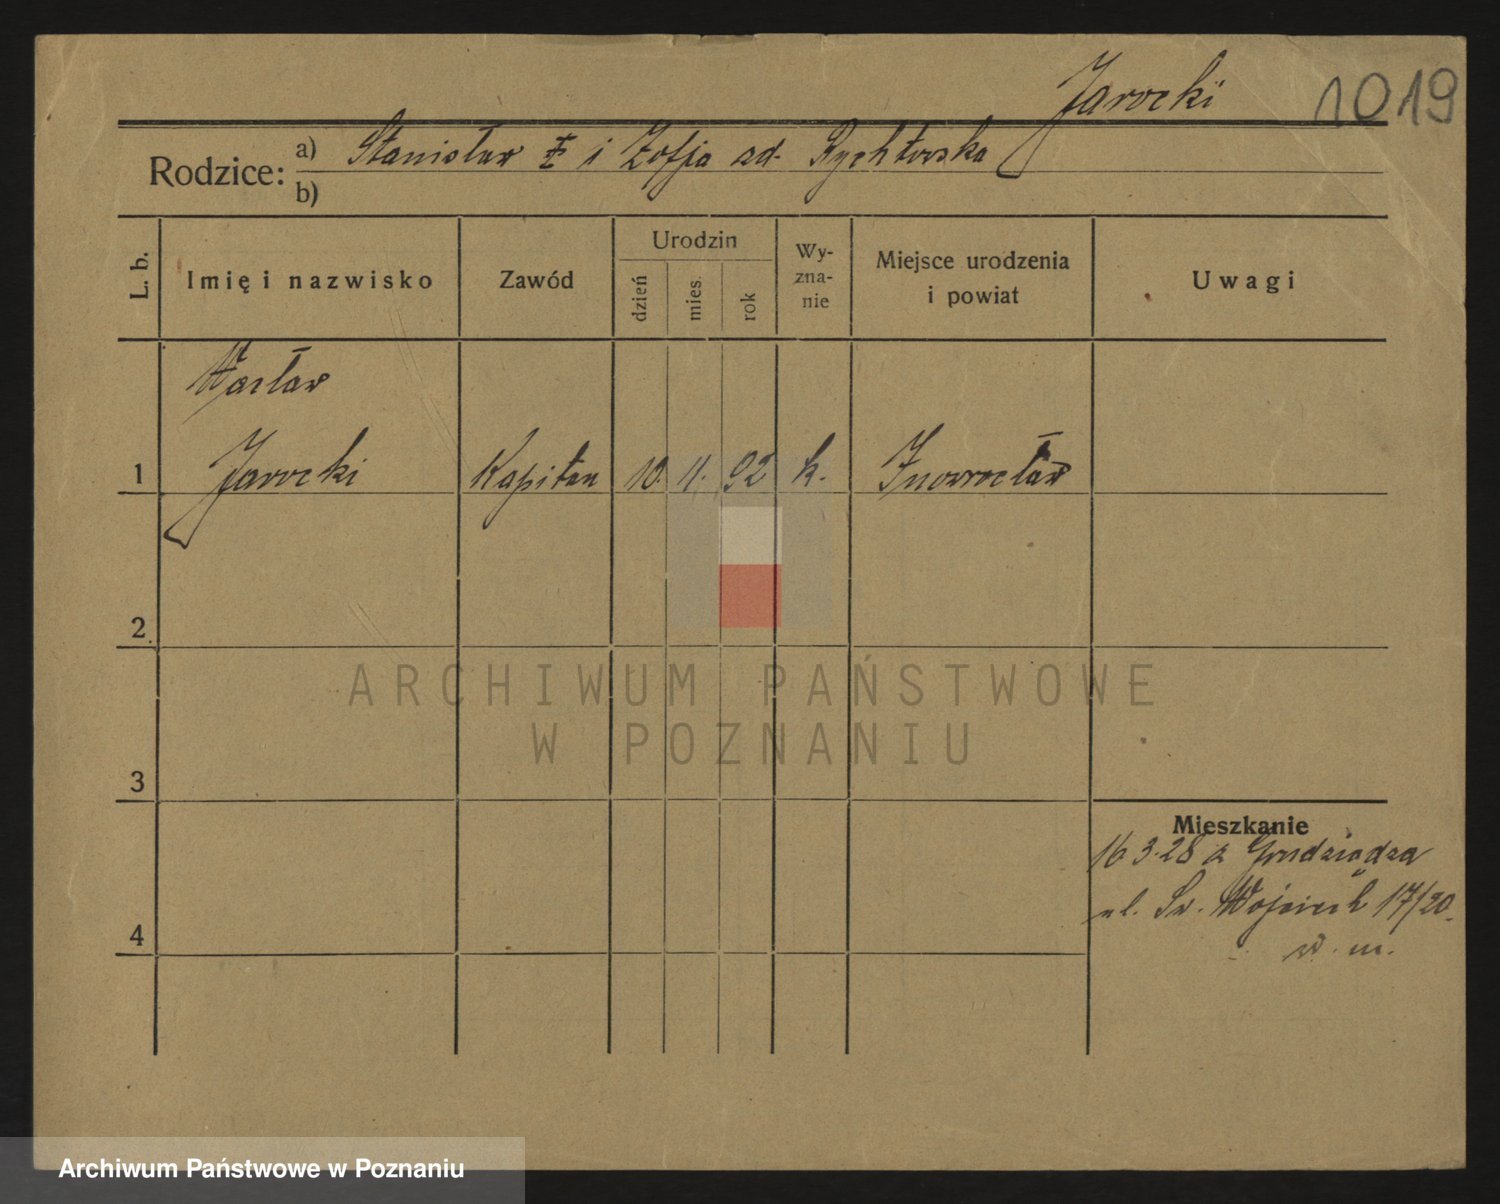 Jarocki
1019
Rodzice: a) Stanisław i Zofja zd. Rychłowska
b)
L. b.
Imię i nazwisko
Zawód
Urodzin
dzień
mies.
rok
Wy-
zna-
nie
Miejsce urodzenia
i powiat
Uwagi
Wacław
1 Jarocki Kapitan 10. 11. 92 k. Inowrocław
2
3
4
Mieszkanie
16 3.28 z Grudziądza
ul. Św. Wojciech 17/20
w. m.
ARCHIWUM PAŃSTWOWE
W POZNANIU
Archiwum Państwowe w Poznaniu